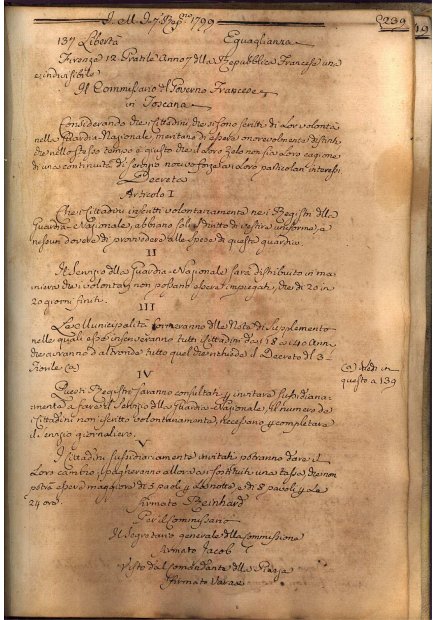 1799
239
19
137 Libertà Eguaglianza
Firenze 12 Pratile Anno 7 dlla Repubblica Francese una
e indivisibile
Il Commissario dl Governo Francese
in Toscana
Considerando che i Cittadini che si sono scritti di lor volontà
nella Guardia Nazionale meritano d'essere onorevolmente distinti
che nello stesso tempo è giusto che il loro zelo non sia loro cagione
di una continuità di servizio a i loro particolari interessi
Decreta
Articolo I
Che i Cittadini inscritti volontariamente nei Registri dlla
Guardia Nazionale, abbiano soli il dritto di vestire uniforme, e
nessun dovere di provvedere alle spese di questa guardia.
II
Il Servizio dlla Guardia Nazionale sarà distribuito in ma
niera che i volontari non possano essere impiegati, che di 20 in
20 giorni finiti.
III
Le Municipalità formeranno dlle Note di Supplemento
nelle quali esse inseriranno tutti i Cittadini da i 18 a i 40 Anni
che avranno d'altronde tutto quel che richiede il Decreto dl 3
Fiorile (a)
(a) Vedi in
questo a 139
IV
Questi Registri saranno consultati, e invitati sussidiaria
mente a fare il servizio dlla Guardia Nazionale, il numero de
Cittadini non scritto volontariamente, necessario p completare
il servizio giornaliero.
V
I Cittadini sussidiariamente invitati potranno dare il
loro cambio, e pagheranno allora a i sostituti una tassa che non
potrà essere maggiore di 5 paoli p la notte, e di 8 paoli p le
24 ore.
Firmato Reinhard
Per il Commissario
Il Segretario generale dlla Commissione
Firmato Jacob
Visto dal Comandante dlla Piazza
Firmato Varae